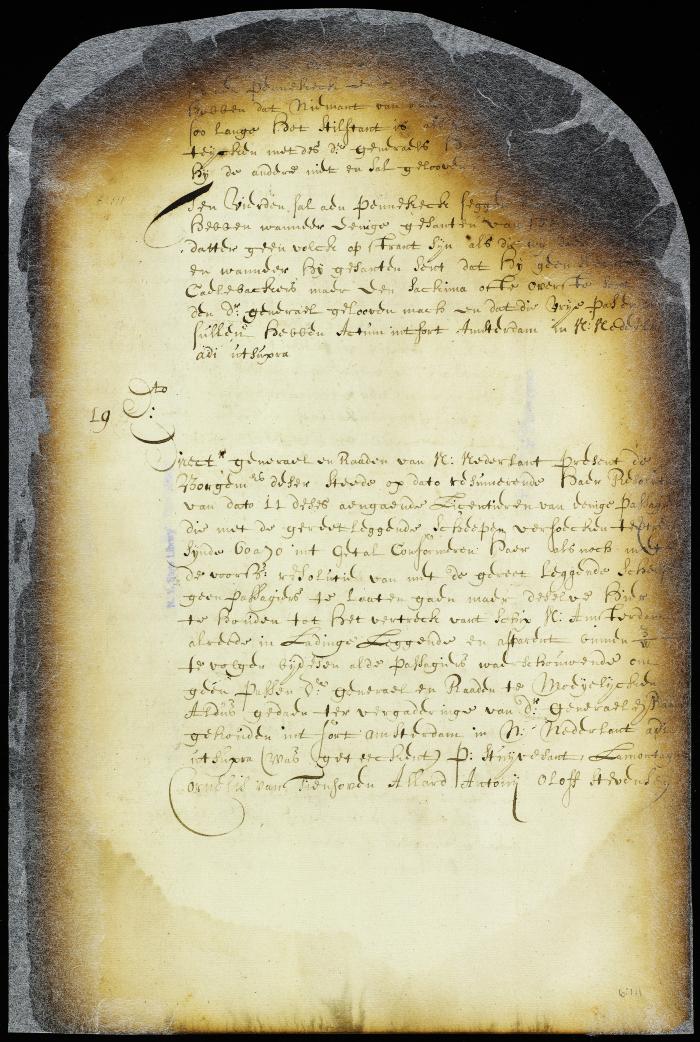 Pennekeck
hebben dat Niemant van
soo lange het stilstant is
teycken met des dr generaels
hy de andere niet en sal gelooven
Ten Vierden sal aen Pennekeck segge
hebben wanneer eenige gesanten van
datter geen volck op strant syn als die
en wanneer hy gesanten sent dat hy geen
Caelebackers maer een Sackima ofte overste
den dr generael gelooven mach en dat die vrye Passe
sullen hebben Actum int fort Amsterdam in N: Nederl
adi utsupra
19 Dto:
Direct.r generael en Raaden van N: Nederlant Present de
Borgem.rs deser steede op dato resumerende haer Resol
van dato 11 deses aengaende Licentieren van eenige Passag
die met de gereet leggende scheepen versoecken te
synde 60 a 70 int getal Conformeren haer als noch met
de voors: resolutie van met de gereet leggende scheep
geen Passagiers te laaten gaen maer deselve hier
te houden tot het vertreck vant schip N: Amsterdam
alreede in Ladinge Leggende en apparent binnen
te volgen bydesen alde Passagiers waerschouwende om
geen Passen dr generael en Raaden te Moeyelycken
Aldus gedaen ter vergaderinge van dr generael en Raa
gehouden int fort amsterdam in N: Nederlant adi
utsupra (was geteeckent) P: Stuyvesant, Lamontagne
Cornelis van Tienhoven Allard Antony Oloff Stevensen